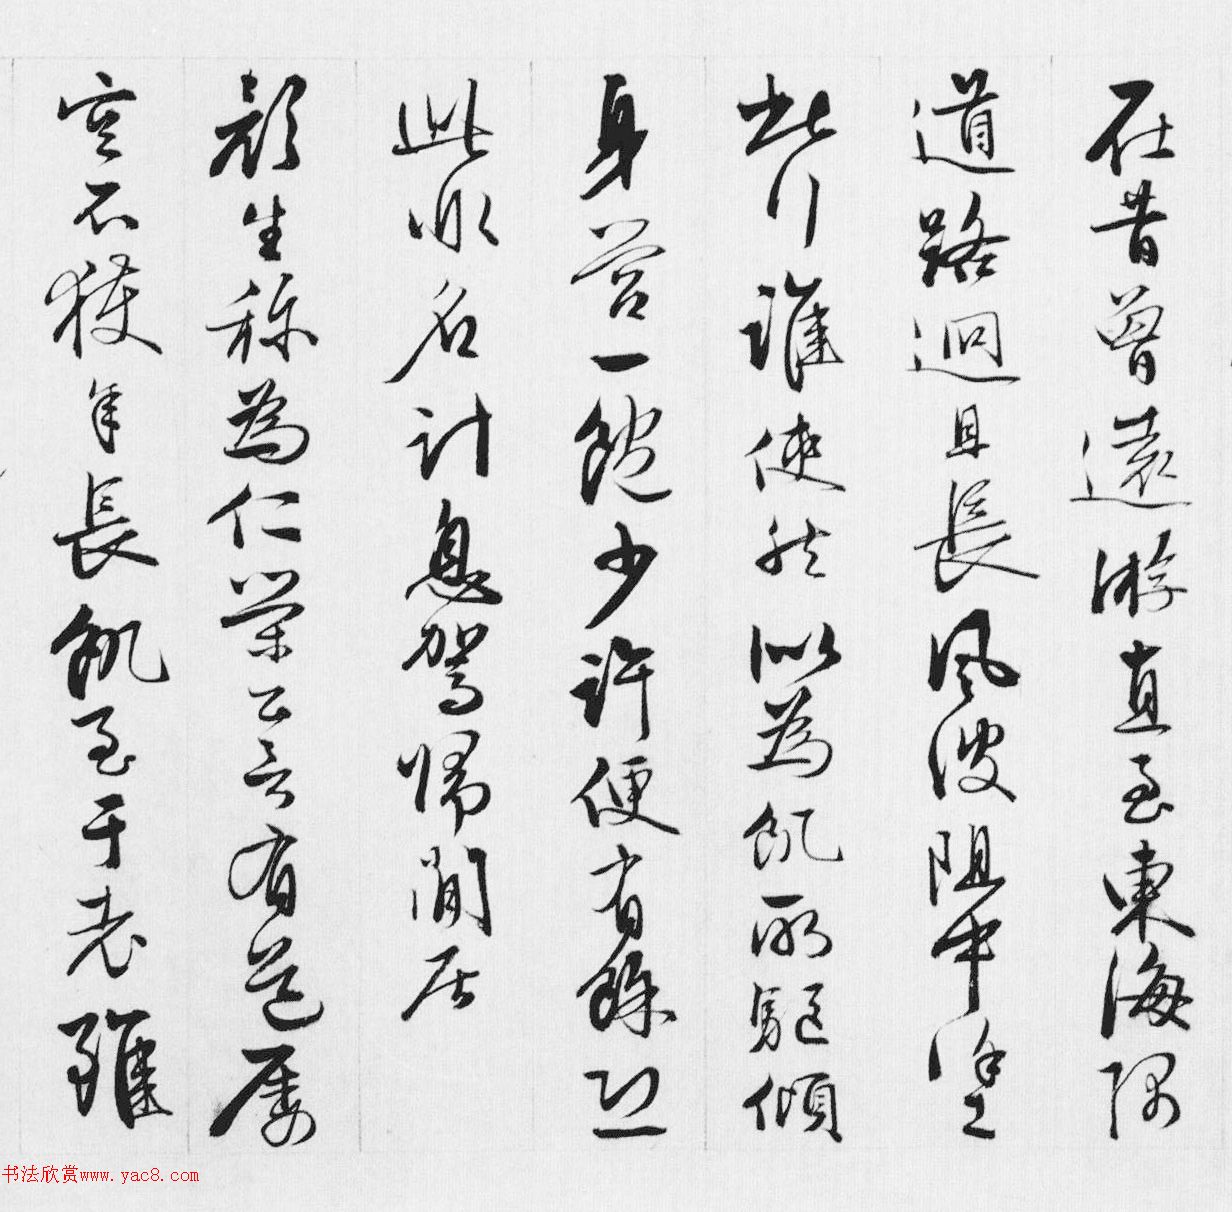 在昔曾遠游直至東海隅
道路迥且長風波阻中塗
此行誰使然似為飢所驅傾
身營一飽少許便有餘恐
此非名計息駕歸閒居
顏生稱為仁榮公言有道屢
空不獲年長飢至于老雖
书法欣赏www.yac8.com